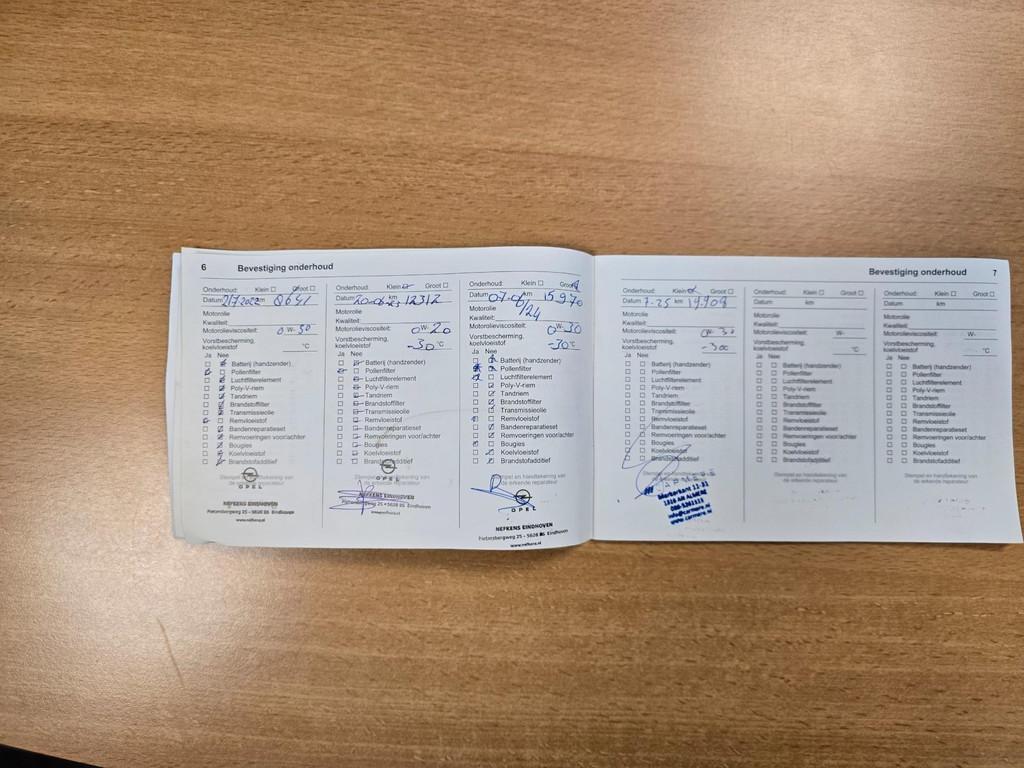 6 Bevestiging onderhoud
Onderhoud: Klein Groot
Datum 21 7 2022 km 8641
Motorolie
Kwaliteit:
Motorolieviscositeit: 0 W- 30
Vorstbescherming,
koelvloeistof °C
Ja Nee
Batterij (handzender)
Pollenfilter
Luchtfilterelement
Poly-V-riem
Tandriem
Brandstoffilter
Transmissieolie
Remvloeistof
Bandenreparatieset
Remvoeringen voor/achter
Bougies
Koelvloeistof
Brandstofadditief
Stempel en handtekening van
de erkende reparateur
OPEL
NEFKENS EINDHOVEN
www.nefkens.nl
Onderhoud: Klein Groot
Datum km 12312
Motorolie
Kwaliteit:
Motorolieviscositeit: 0 W- 20
Vorstbescherming,
koelvloeistof -30 °C
Ja Nee
Batterij (handzender)
Pollenfilter
Luchtfilterelement
Poly-V-riem
Tandriem
Brandstoffilter
Transmissieolie
Remvloeistof
Bandenreparatieset
Remvoeringen voor/achter
Bougies
Koelvloeistof
Brandstofadditief
OPEL
NEFKENS EINDHOVEN
Onderhoud: Klein Groot
Datum 07-06/24 km 15970
Motorolie
Kwaliteit:
Motorolieviscositeit: 0 W- 30
Vorstbescherming,
koelvloeistof -30 °C
Ja Nee
Batterij (handzender)
Pollenfilter
Luchtfilterelement
Poly-V-riem
Tandriem
Brandstoffilter
Transmissieolie
Remvloeistof
Bandenreparatieset
Remvoeringen voor/achter
Bougies
Koelvloeistof
Brandstofadditief
Stempel en handtekening van
de erkende reparateur
OPEL
NEFKENS EINDHOVEN
25 - 5628 Eindhoven
www.nefkens.nl
Bevestiging onderhoud 7
Onderhoud: Klein Groot
Datum 7-25 km 19908
Motorolie
Kwaliteit:
Motorolieviscositeit: 0 W- 30
Vorstbescherming,
koelvloeistof
Ja Nee
Batterij (handzender)
Pollenfilter
Luchtfilterelement
Poly-V-riem
Tandriem
Brandstoffilter
Transmissieolie
Remvloeistof
Bandenreparatieset
Remvoeringen voor/achter
Bougies
Koelvloeistof
Brandstofadditief
Markerkant 12-31
1316 AN ALMERE
088-5261113
info@carmore.nl
www.carmore.nl
Onderhoud: Klein Groot
Datum km
Motorolie
Kwaliteit:
Motorolieviscositeit: W-
Vorstbescherming,
koelvloeistof °C
Ja Nee
Batterij (handzender)
Pollenfilter
Luchtfilterelement
Poly-V-riem
Tandriem
Brandstoffilter
Transmissieolie
Remvloeistof
Bandenreparatieset
Remvoeringen voor/achter
Bougies
Koelvloeistof
Brandstofadditief
Stempel en handtekening van
de erkende reparateur
Onderhoud: Klein Groot
Datum km
Motorolie
Kwaliteit:
Motorolieviscositeit: W-
Vorstbescherming,
koelvloeistof °C
Ja Nee
Batterij (handzender)
Pollenfilter
Luchtfilterelement
Poly-V-riem
Tandriem
Brandstoffilter
Transmissieolie
Remvloeistof
Bandenreparatieset
Remvoeringen voor/achter
Bougies
Koelvloeistof
Brandstofadditief
Stempel en handtekening van
de erkende reparateur